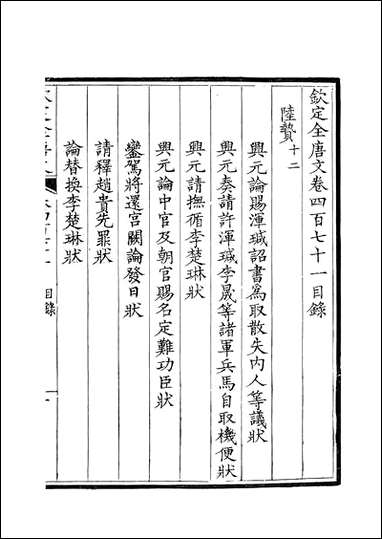 欽定全唐文卷四百七十一目錄
陸贄十二
興元論賜渾瑊詔書為取散失內人等議狀
興元奏請許渾瑊李晟等諸軍兵馬自取機便狀
興元請撫循李楚琳狀
興元論中官及朝官賜名定難功臣狀
鑾駕將還宮闕論發日狀
請釋趙貴先罪狀
論替換李楚琳狀
目錄